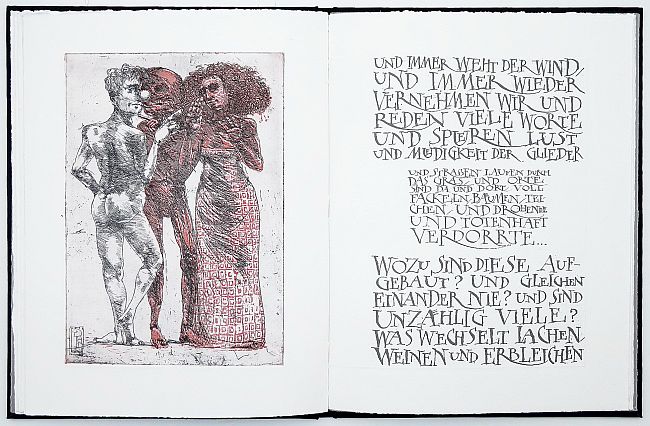 UND IMMER WEHT DER WIND,
UND IMMER WIEDER
VERNEHMEN WIR UND
REDEN VIELE WORTE
UND SPÜREN LUST
UND MÜDIGKEIT DER GLIEDER
UND STRAßEN LAUFEN DURCH
DAS GRAS, UND ORTE
SIND DA UND DORT, VOLL
FACKELN, BÄUMEN, TEI-
CHEN, UND DROHENDE
UND TOTENHAFT
VERDORRTE...
WOZU SIND DIESE AUF-
GEBAUT? UND GLEICHEN
EINANDER NIE? UND SIND
UNZÄHLIG VIELE?
WAS WECHSELT LACHEN,
WEINEN UND ERBLEICHEN